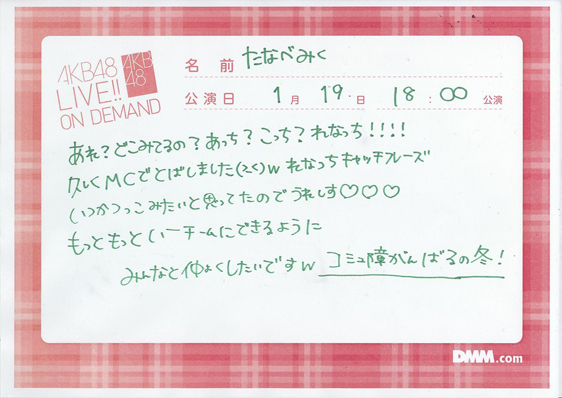 AKB48
LIVE!!
ON DEMAND
AKB
48
名前 たなべみく
公演日 1月 19日 18:00 公演
あれ?どこみてるの?あっち?こっち?れなっち!!!!
久しくMCでとばしました(2く)w れなっちキャッチフレーズ
いつかつっこみたいと思ってたのでうれしす♡♡♡
もっともっといーチームにできるように
みんなと仲よくしたいですw コミュ障がんばるの冬!
DMM.com